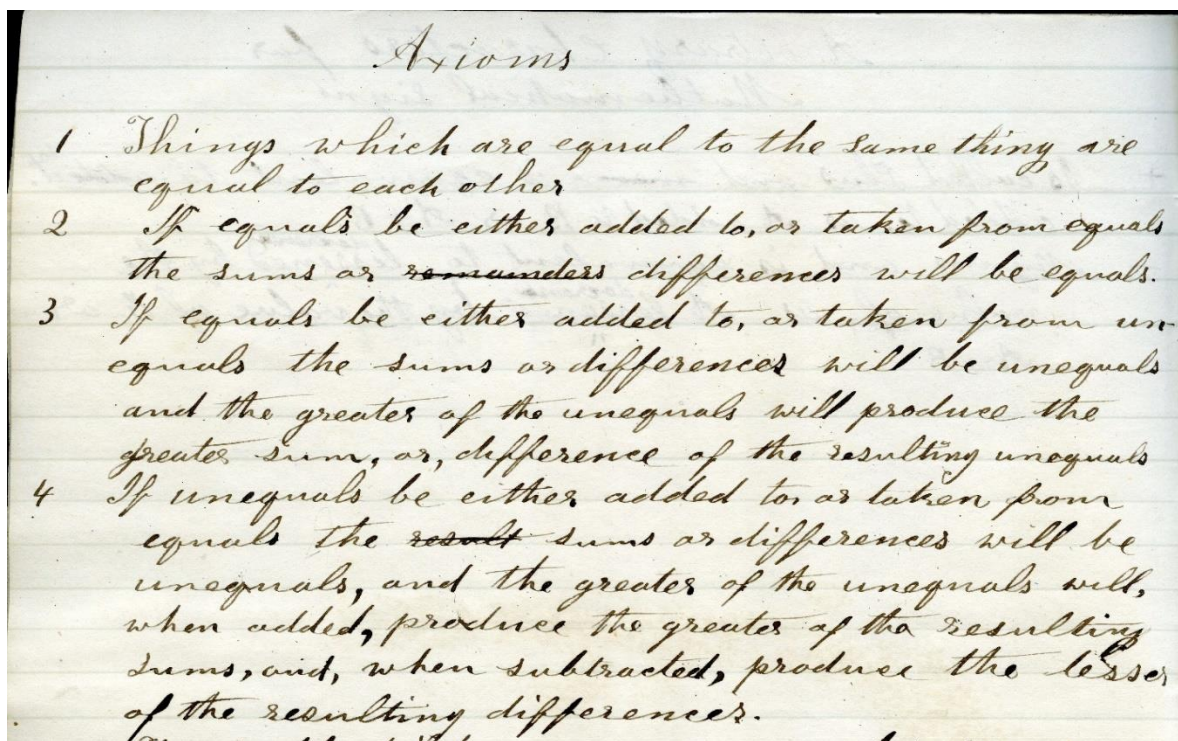 Axioms
1 Things which are equal to the same thing are
equal to each other
2 If equals be either added to, or taken from equals
the sums or remainders differences will be equals.
3 If equals be either added to, or taken from un-
equals the sums or differences will be unequals
and the greater of the unequals will produce the
greater sum, or, difference of the resulting unequals
4 If unequals be either added to, or taken from
equals the result sums or differences will be
unequals, and the greater of the unequals will,
when added, produce the greater of the resulting
sums, and, when subtracted, produce the lesser
of the resulting differences.